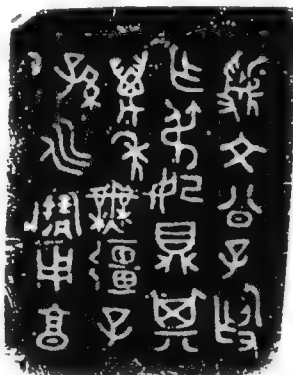 虢文公子𣪘
乍弔妃鼎其
萬年無疆子
孫永寶用亯